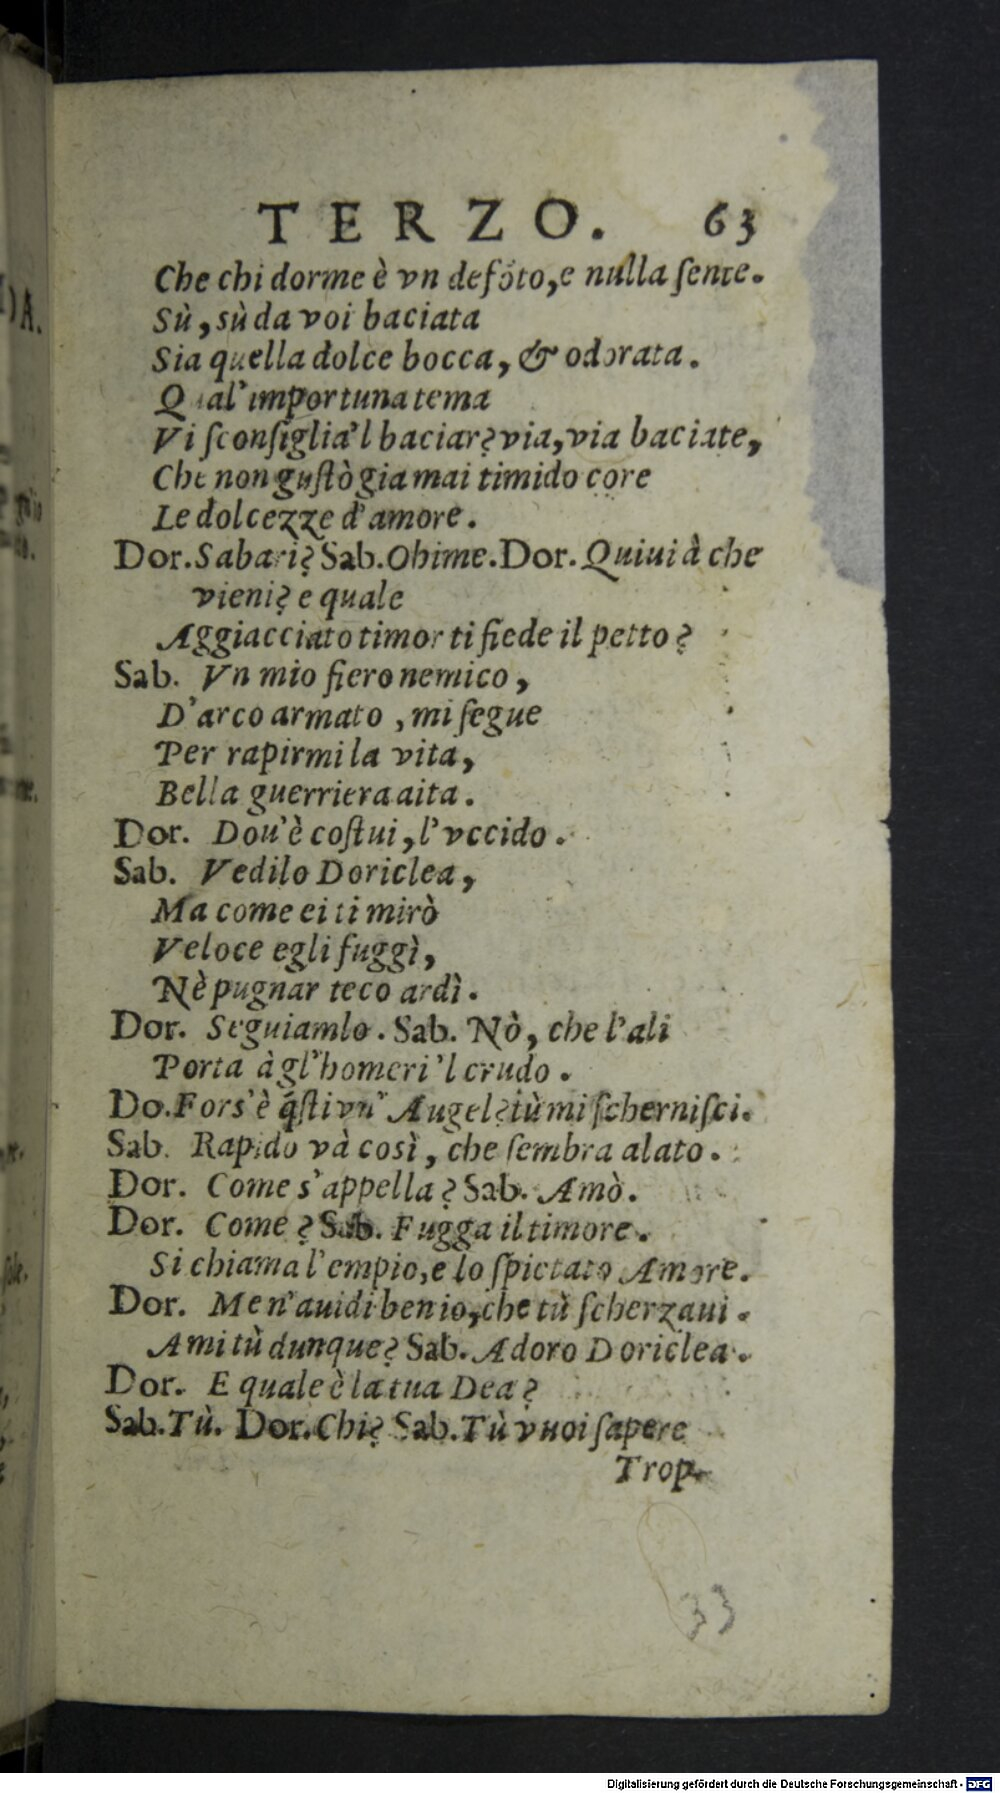 TERZO. 63
Che chi dorme è vn defõto, e nulla ſente.
Sù, sù da voi baciata
Sia quella dolce bocca, & odorata.
Qual' importuna tema
Vi ſconſiglia 'l baciar? via, via baciate,
Che non guſtò gia mai timido core
Le dolcezze d'amore.
Dor. Sabari? Sab. Ohime. Dor. Quiui à che
vieni? e quale
Aggiacciato timor ti fiede il petto?
Sab. Vn mio fiero nemico,
D'arco armato, mi ſegue
Per rapirmi la vita,
Bella guerriera aita.
Dor. Dou'è coſtui, l'vccido.
Sab. Vedilo Doriclea,
Ma come ei ti mirò
Veloce egli fuggì,
Nè pugnar teco ardì.
Dor. Seguiamlo. Sab. Nò, che l'ali
Porta à gl'homeri 'l crudo.
Do. Fors'è q̃ſti vn' Augel? tù mi ſcherniſci.
Sab. Rapido và così, che ſembra alato.
Dor. Come s'appella? Sab. Amò.
Dor. Come? Sab. Fugga il timore.
Si chiama l'empio, e lo ſpietato Amore.
Dor. Me n'auidi ben io, che tù ſcherzaui.
Ami tù dunque? Sab. Adoro Doriclea.
Dor. E quale è la tua Dea?
Sab. Tù. Dor. Chi? Sab. Tù vuoi ſapere
Trop-
33
Digitalisierung gefördert durch die Deutsche Forschungsgemeinschaft - DFG